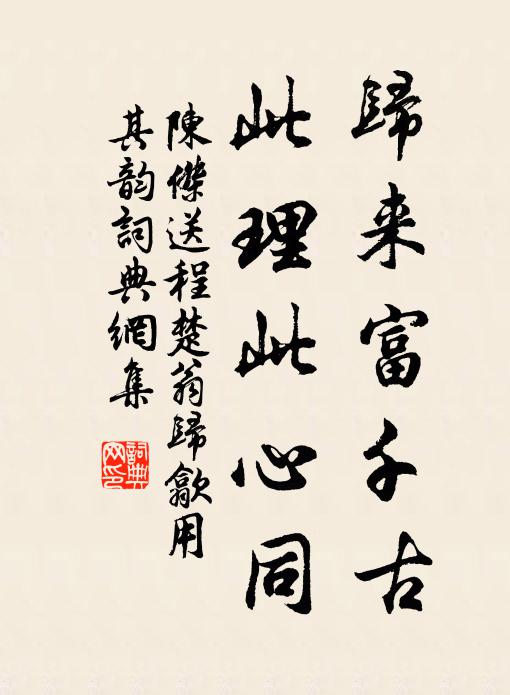 歸来富千古
此理此心同
陳傑送程楚翁歸歙用
其韵詞典網集
詞典網印